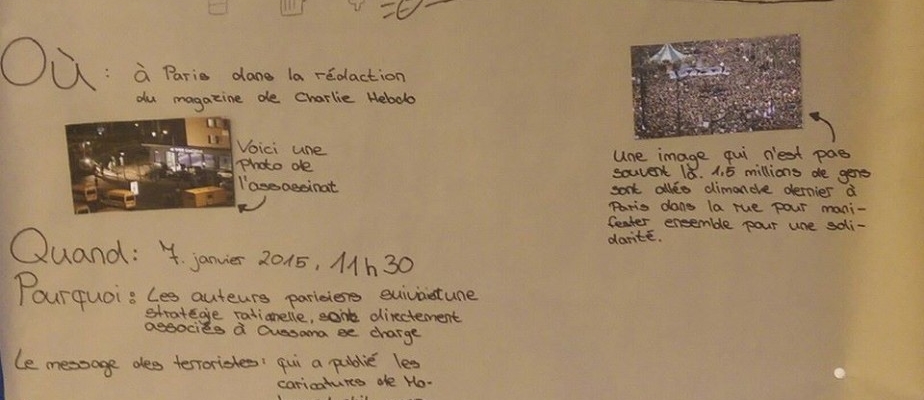 Où : à Paris dans la rédaction
du magazine de Charlie Hebdo
Voici une
photo de
l'assassinat
Quand: 7. janvier 2015, 11h30
Pourquoi: Les auteurs parisiers suivaient une
stratégie rationelle, sont directement
associés à Oussama se charge
Le message des terroristes: qui a publié les
caricatures de Mo-
Une image qui n'est pas
souvent là. 1,5 millions de gens
sont allés dimanche dernier à
Paris dans la rue pour mani-
fester ensemble pour une soli-
darité.